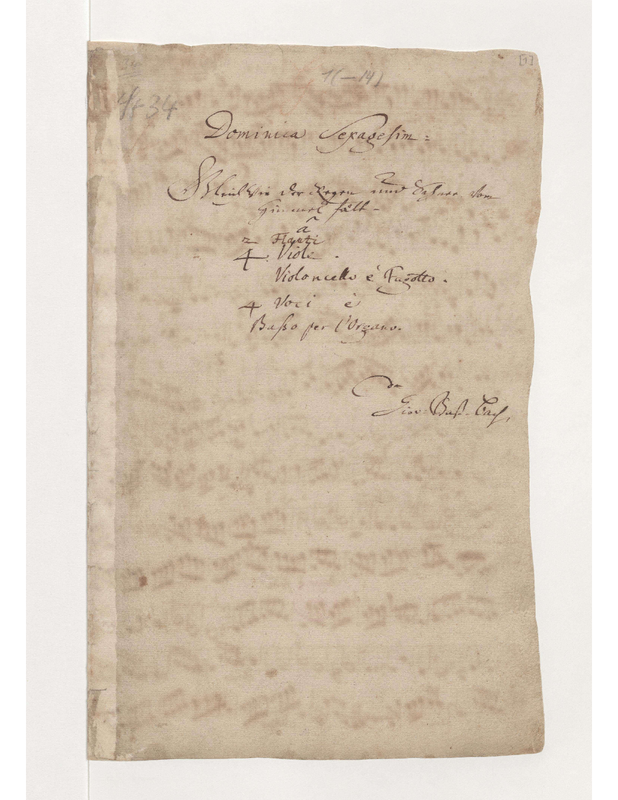 [1]
1(–14)
4834
Dominica Sexagesim:
Gleich wie der Regen und Schnee vom
Himmel fält.
à
2 Flauti
4. Viole.
Violoncello è Fagotto.
4 Voci è
Basso per l'Organo.
da
Giov. Bast. Bach.